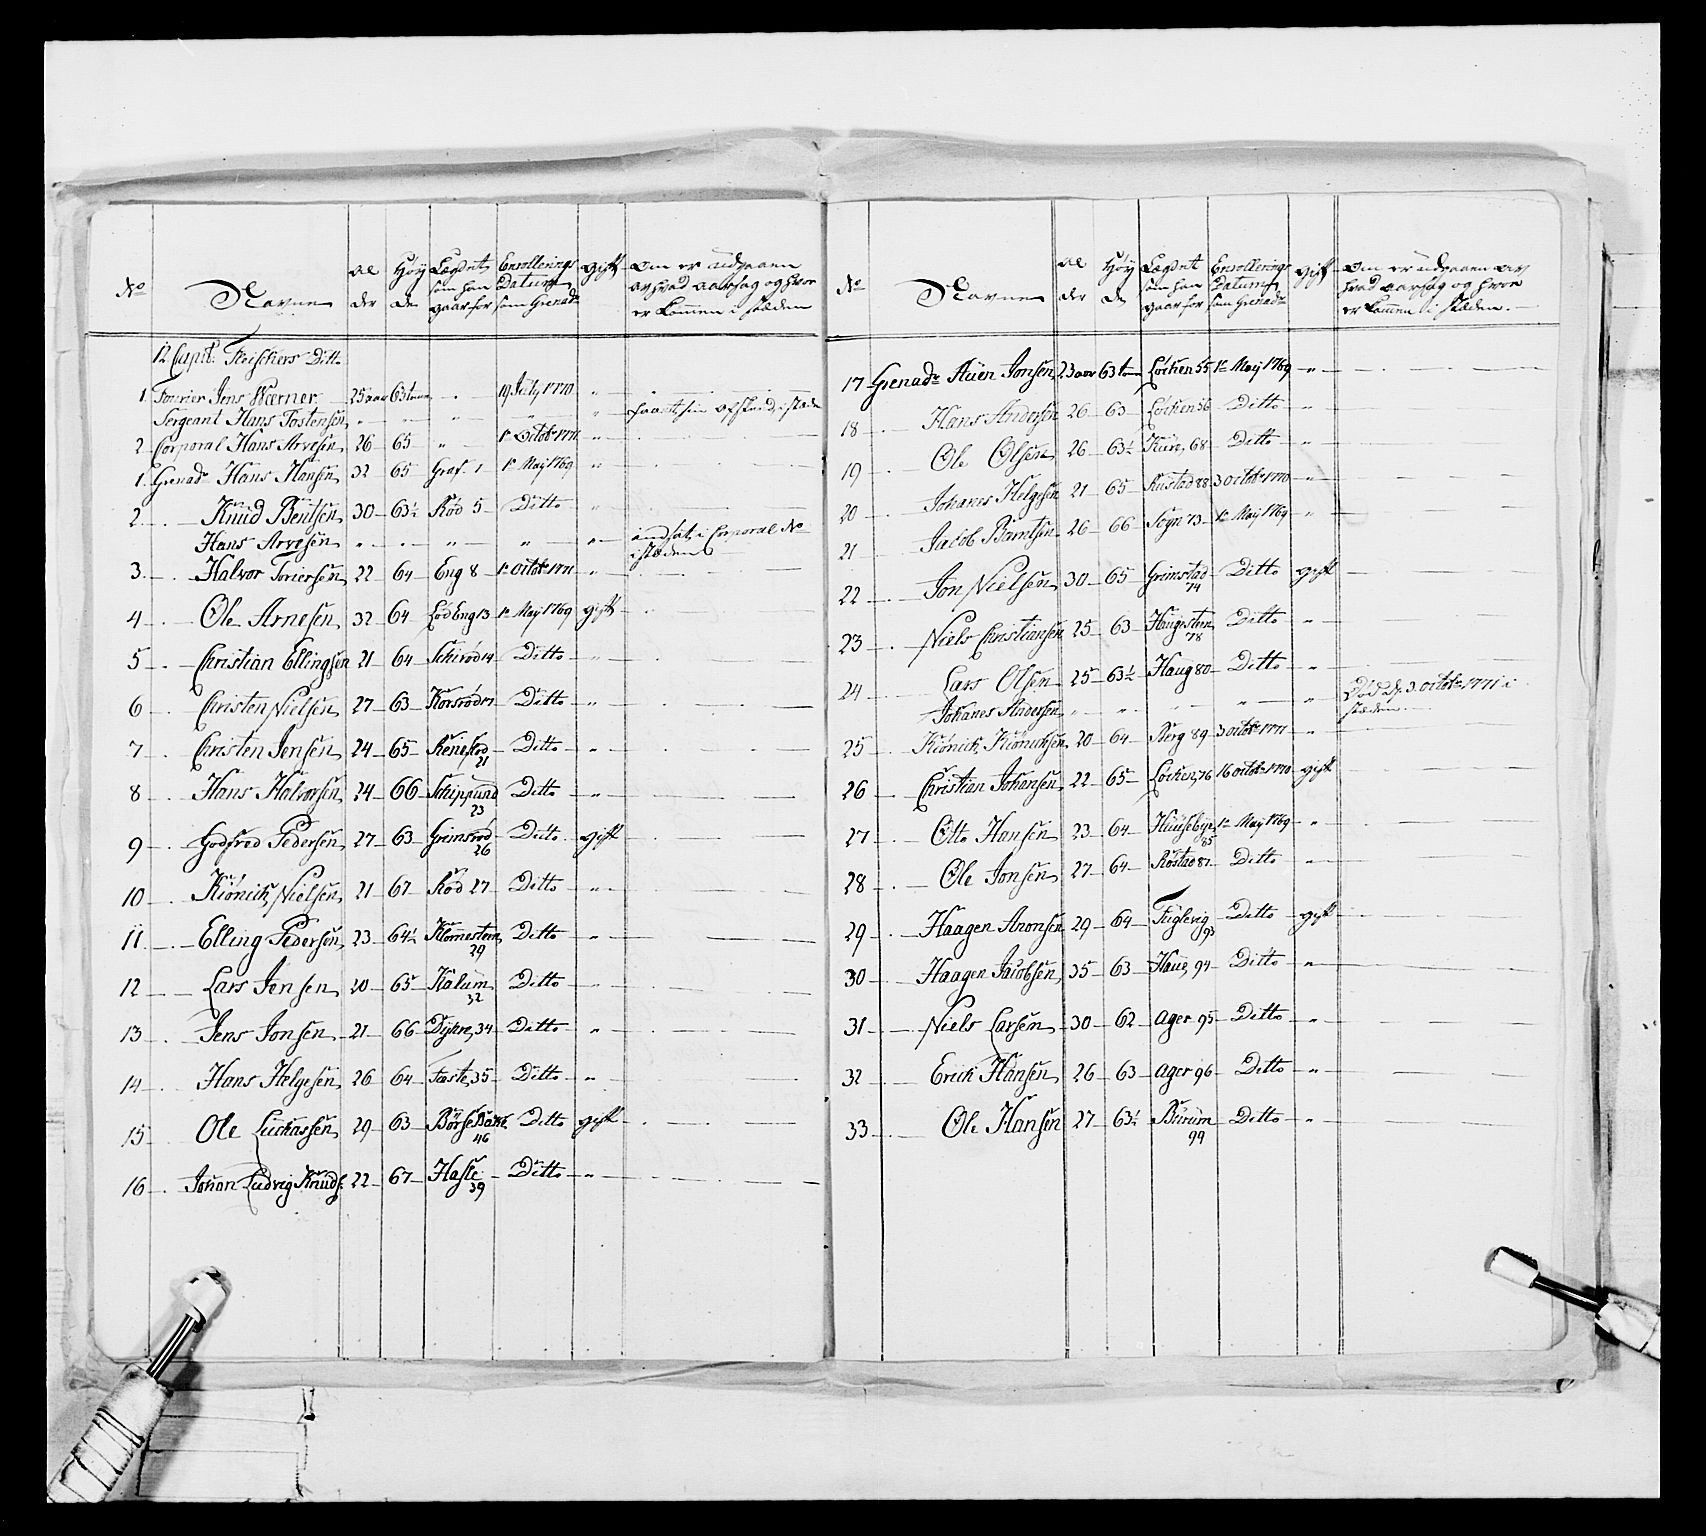 No Navne Alder Høyden Lægdet som han gaar for Enrollerings Datum som Grenadr gift Om er udgaaen av hvad aarsag og hvor er kommen i stæden
12 Capit: Fleischers Ditto
1 Fourier Jens Wærner 25 aar 63 tom 19 July 1770 "
Sergeant Hans Tostensen " " " " " faaet sin afskeed, i stæde
2 Corporal Hans Arvesen 26 65 " 1e Octobr 1771 "
1. Grenadr Hans Hansen 32 65 Graf. 1 1e Maij 1769 "
2 Knud Bentsen 30 63½ Rød 5 Ditto "
Hans Arvesen " " " " " indsat i Corporal No
i stæden
3 Halvor Toriersen 22 64 Eng 8 1e Octobr 1771 "
4 Ole Arnesen 32 64 Lød Eng 13 1e Maij 1769 gift
5 Christian Ellingsen 21 64 Schirød 14 Ditto "
6 Christen Nielsen 27 63 Korsrød 17 Ditto "
7 Christen Jensen 24 65 Reneskod 21 Ditto "
8 Hans Halvorsen 24 66 Schipsund 23 Ditto "
9 Godfred Pedersen 27 63 Grimsrød 26 Ditto gift
10 Kiönick Nielsen 21 67 Rød 27 Ditto "
11 Elling Pedersen 23 64½ Klomesten 29 Ditto "
12 Lars Jensen 20 65 Kalum 32 Ditto "
13 Jens Jonsen 21 66 Dyhre 34 Ditto "
14 Hans Helgesen 26 64 Taste 35 Ditto "
15 Ole Luckassen 29 63 Børse Bakke 46 Ditto gift
16 Johan Ludvig Knuds: 22 67 Hasle 39 Ditto "
No Navne Alder Høyde Lægdet som han gaar for Enrollerings Datum som Grenadr gift Om er udgaaen av hvad aarsag og hvor er kommen i stæden
17 Grenadr Auen Jonsen 23 aar 63 tom Løcken 55 1e Maij 1769 "
18 Hans Andersen 26 63 Løcken 56 Ditto "
19 Ole Olsen 26 63½ Kure 68 Ditto "
20 Johanes Helgesen 21 65 Rustad 88 3 Octobr 1770 "
21 Jacob Berntsen 26 66 Sogn 73 1e Maij 1769 "
22 Jon Nielsen 30 65 Grimstad 74 Ditto gift
23 Niels Christiansen 25 63 Haugesten 78 Ditto "
24 Lars Olsen 25 63½ Haug 80 Ditto "
Johanes Andersen " " " " " Død d. 3 Octobr 1771 i
stæden
25 Kiönick Kiönicksen 20 64 Berg 89 3 Octobr 1771 "
26 Christian Johansen 22 65 Løcken 76 16 Octobr 1770 gift
27 Otto Hansen 23 64 Huusebye 85 1e Maij 1769 "
28 Ole Jonsen 27 64 Røstad 87 Ditto "
29 Haagen Aronsen 29 64 Fuglevig 93 Ditto gift
30 Haagen Jacobsen 35 63 Haue 94 Ditto "
31 Niels Larsen 30 62 Ager 95 Ditto "
32 Erick Hansen 26 63 Ager 96 Ditto "
33 Ole Hansen 27 63½ Burum 99 Ditto "